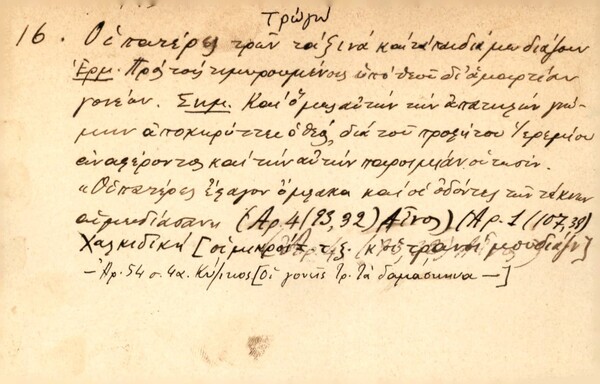 τρώγω
16. Οἱ πατέρες τρῶν τὰ ξινά καί τά παιδιά μουδιάζουν
Ἑρμ. Πρός τούς τιμωρουμένους ὑπό θεοῦ δι' ἁμαρτίαν
γονέων. Σημ. Καί ὅμως αὐτήν τήν ἀπατηλήν γνώ-
μην ἀποκηρύττει ὁ θεός, διά τοῦ προφήτου Ἱερεμίου
ἀναφέροντος καί τήν αὐτήν παροιμίαν οὕτωσιν.
"Οἱ πατέρες ἔφαγον ὄμφακα καί οἱ ὀδόντες τῶν τέκνων
αἱμωδίασαν (Αρ. 4/23,92) Αἶνος) (Αρ. 1 (107,38)
Χαλκιδική [οἱ μικροί τ. ξ. κ' οἱ τρανοί μουδιάζν]
— Ἀρ. 54 σ. 4α. Κύζικος [Οἱ γονεῖς τρ. τά δαμάσκηνα —]